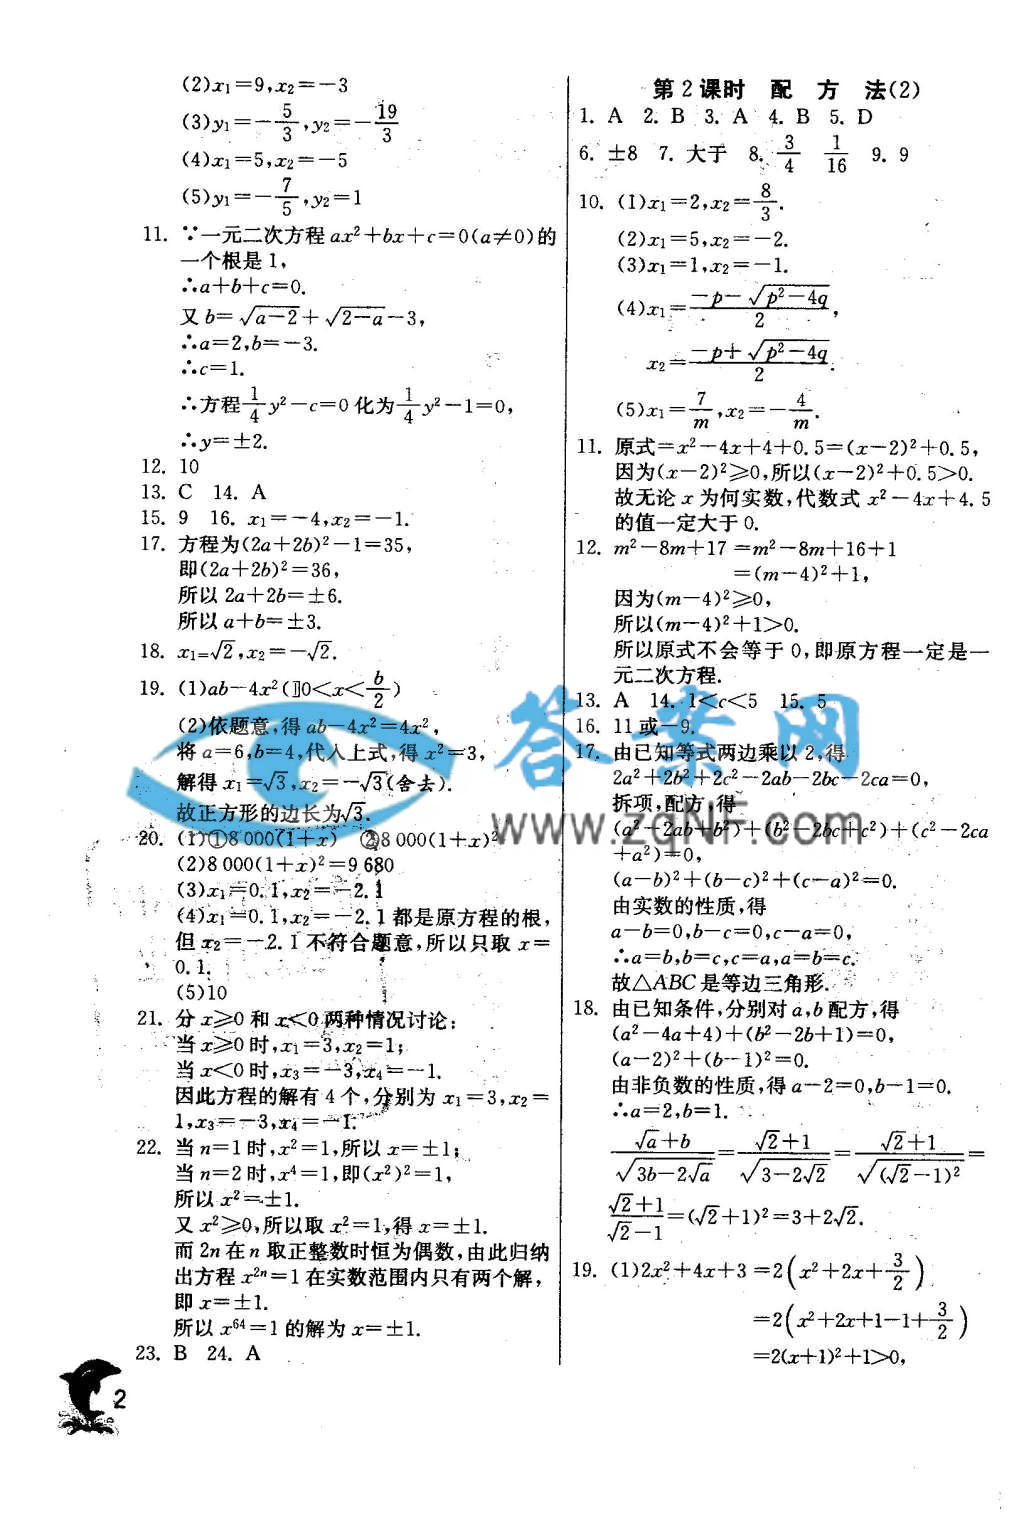 (2)x₁=9,x₂=-3
(3)y₁=-5/3,y₂=-19/3
(4)x₁=5,x₂=-5
(5)y₁=-7/5,y₂=1
11. ∵一元二次方程 ax²+bx+c=0(a≠0)的
一个根是 1,
∴a+b+c=0.
又 b=√(a-2)+√(2-a)-3,
∴a=2,b=-3.
∴c=1.
∴方程 1/4 y²-c=0 化为 1/4 y²-1=0,
∴y=±2.
12. 10
13. C 14. A
15. 9 16. x₁=-4,x₂=-1.
17. 方程为(2a+2b)²-1=35,
即(2a+2b)²=36,
所以 2a+2b=±6.
所以 a+b=±3.
18. x₁=√2,x₂=-√2.
19. (1)ab-4x²(0<x<b/2)
(2)依题意,得 ab-4x²=4x²,
将 a=6,b=4,代入上式,得 x²=3,
解得 x₁=√3,x₂=-√3(舍去).
故正方形的边长为√3.
20. (1)①8 000(1+x) ②8 000(1+x)²
(2)8 000(1+x)²=9 680
(3)x₁=0.1,x₂=-2.1
(4)x₁=0.1,x₂=-2.1 都是原方程的根,
但 x₂=-2.1 不符合题意,所以只取 x=
0.1.
(5)10
21. 分 x≥0 和 x<0 两种情况讨论:
当 x≥0 时,x₁=3,x₂=1;
当 x<0 时,x₃=-3,x₄=-1.
因此方程的解有 4 个,分别为 x₁=3,x₂=
1,x₃=-3,x₄=-1.
22. 当 n=1 时,x²=1,所以 x=±1;
当 n=2 时,x⁴=1,即(x²)²=1,
所以 x²=±1.
又 x²≥0,所以取 x²=1,得 x=±1.
而 2n 在 n 取正整数时恒为偶数,由此归纳
出方程 x²ⁿ=1 在实数范围内只有两个解,
即 x=±1.
所以 x⁶⁴=1 的解为 x=±1.
23. B 24. A
2
第 2 课时 配 方 法(2)
1. A 2. B 3. A 4. B 5. D
6. ±8 7. 大于 8. 3/4 1/16 9. 9
10. (1)x₁=2,x₂=8/3.
(2)x₁=5,x₂=-2.
(3)x₁=1,x₂=-1.
(4)x₁=(-p-√(p²-4q))/2,
x₂=(-p+√(p²-4q))/2.
(5)x₁=7/m,x₂=-4/m.
11. 原式=x²-4x+4+0.5=(x-2)²+0.5,
因为(x-2)²≥0,所以(x-2)²+0.5>0.
故无论 x 为何实数,代数式 x²-4x+4.5
的值一定大于 0.
12. m²-8m+17 =m²-8m+16+1
=(m-4)²+1,
因为(m-4)²≥0,
所以(m-4)²+1>0.
所以原式不会等于 0,即原方程一定是一
元二次方程.
13. A 14. 1<c<5 15. 5
16. 11 或-9.
17. 由已知等式两边乘以 2,得
2a²+2b²+2c²-2ab-2bc-2ca=0,
拆项,配方,得
(a²-2ab+b²)+(b²-2bc+c²)+(c²-2ca
+a²)=0,
(a-b)²+(b-c)²+(c-a)²=0.
由实数的性质,得
a-b=0,b-c=0,c-a=0,
∴a=b,b=c,c=a,a=b=c.
故△ABC 是等边三角形.
18. 由已知条件,分别对 a,b 配方,得
(a²-4a+4)+(b²-2b+1)=0,
(a-2)²+(b-1)²=0.
由非负数的性质,得 a-2=0,b-1=0.
∴a=2,b=1.
(√a+b)/√(3b-2√a)=(√2+1)/√(3-2√2)=(√2+1)/√((√2-1)²)=
(√2+1)/(√2-1)=(√2+1)²=3+2√2.
19. (1)2x²+4x+3 =2(x²+2x+3/2)
=2(x²+2x+1-1+3/2)
=2(x+1)²+1>0,
答案网
www.zqNF.com